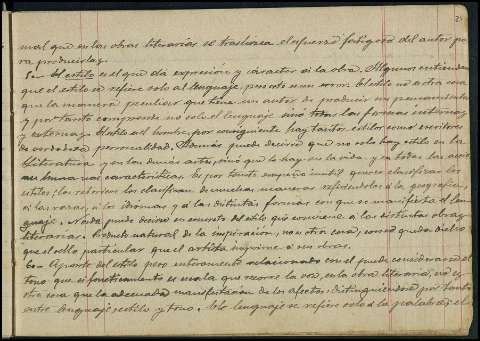 mal que en las obras literarias se trasluzca el esfuerzo fatigoso del autor pa
ra producirlas.
5.- El estilo es el que da expresión y carácter á la obra. Algunos entienden
que el estilo se refiere solo al lenguaje, pero esto es un error. El estilo no es otra cosa
que la manera peculiar que tiene un autor de producir su pensamiento
y por tanto comprende no solo el lenguaje sino todas las formas internas
y externas. El estilo es el hombre, por consiguiente hay tantos estilos como escritores
de verdadera personalidad. Además puede decirse que no solo hay estilo en la
literatura y en las demás artes, sino que lo hay en la vida y en todas las
características. Es por tanto empeño inutil querer clasificar los
estilos; los retóricos los clasifican de muchas maneras refiriéndolos á la geografía,
á las razas, á los idiomas y á las distintas formas con que se manifiesta el len
guaje. Nada puede decirse en concreto del estilo que conviene á las distintas obras
literarias. Es fruto natural de la inspiración, no es otra cosa, como queda dicho
que el sello particular que el artista imprime á sus obras.
6.- Aparte del estilo pero enteramente relacionado con él puede considerarse el
tono que si fonéticamente es escala que recorre la voz, en la obra literaria, no es
otra cosa que la adecuada manifestación de los afectos: distinguiéndose por tanto
entre lenguaje, estilo y tono. El lenguaje se refiere solo á la palabra; el